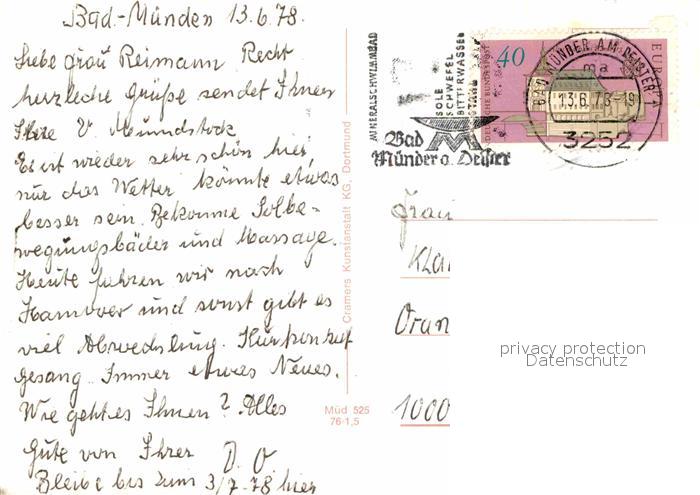 Bad-Münden 13.6.78.
Liebe Frau Reimann Recht
herzliche Grüße sendet Ihnen
Ihre V. Mundstock
Es ist wieder sehr schön hier,
nur das Wetter könnte etwas
besser sein. Bekomme Solbe-
wegungsbäder und Massage.
Heute fahren wir nach
Hannover und sonst gibt es
viel Abwechslung. Kurkonzert
Gesang. Immer etwas Neues.
Wie geht es Ihnen? Alles
Gute von Ihrer
Bleibe bis zum 3/7.78 hier
Cramers Kunstanstalt KG, Dortmund
Müd 525
76-1,5
MINERALSCHWIMMBAD
SOLE
SCHWEFEL
BITTERWASSER
Bad
Münder a. Deister
40
DEUTSCHE BUNDESPOST
EUROPA
BAD MÜNDER AM DEISTER
ma
13.6.78-19
3252
Frau
Kla
Oran
1000
privacy protection
Datenschutz